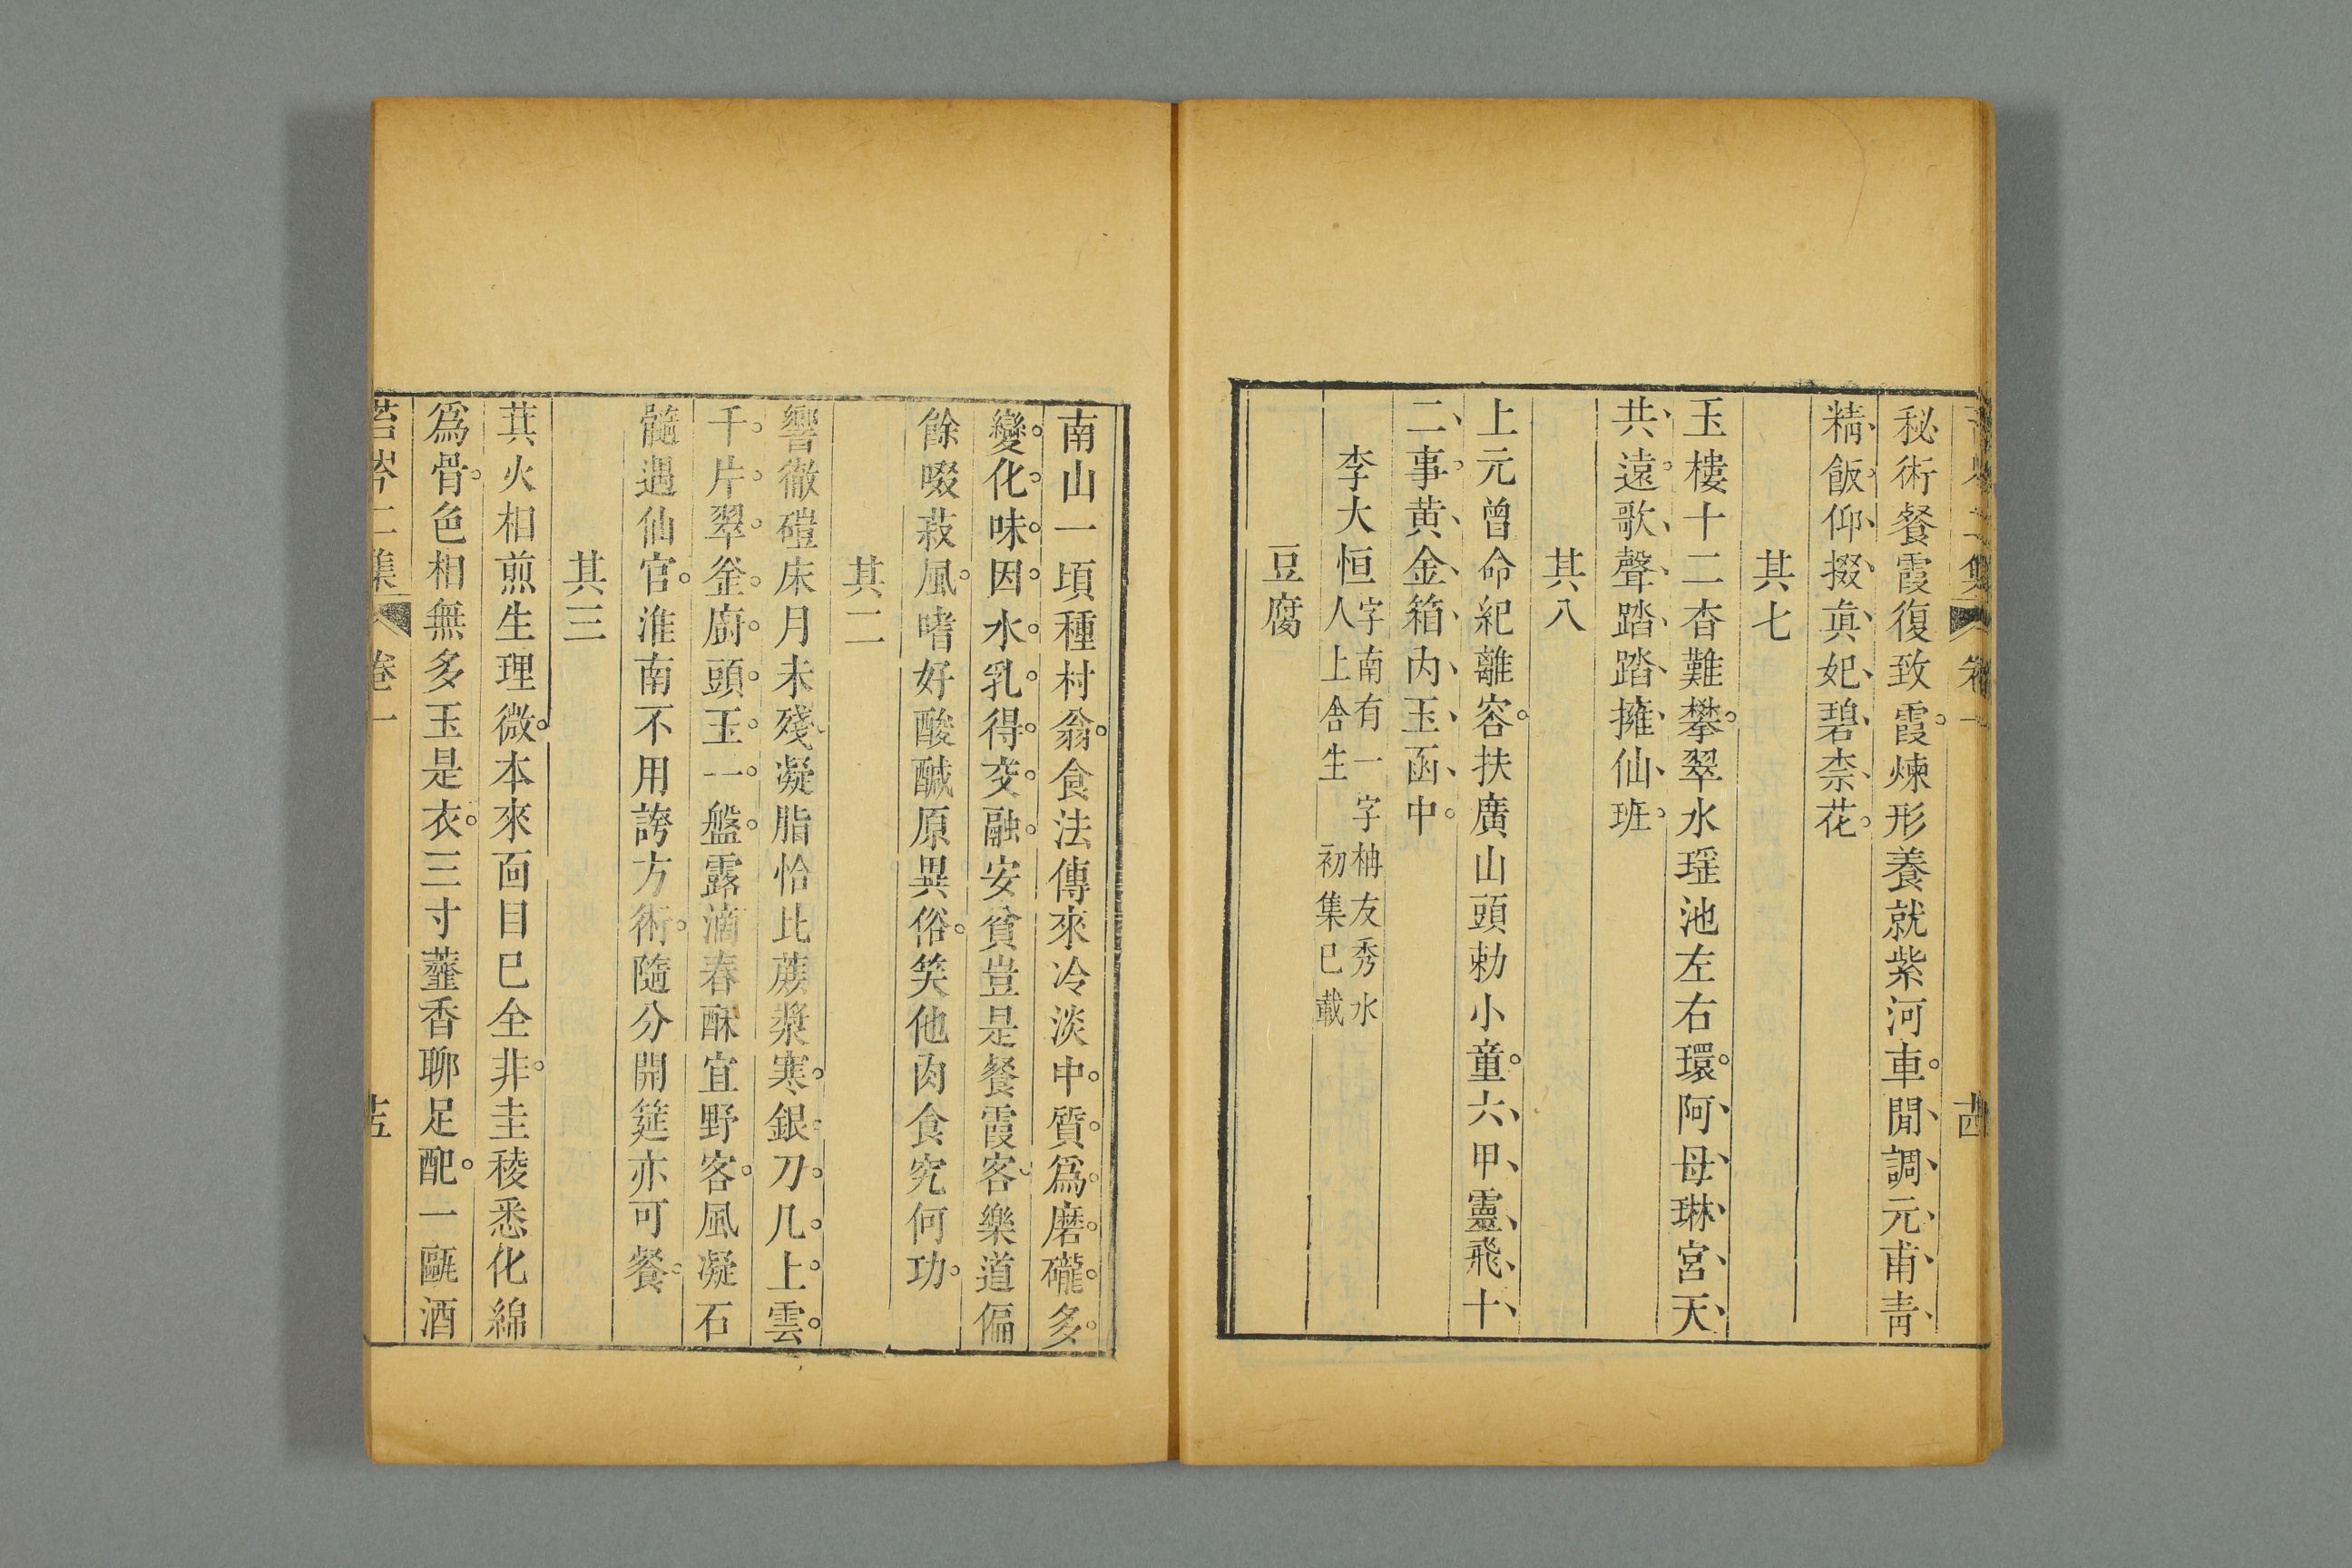 二集 卷一 古
秘術餐霞復致霞。煉形養就紫河車。閒、調、元、甫、靑、
精、飯、仰、掇、眞、妃、碧、柰、花。
其七
玉樓十二杳難攀。翠水瑶池左右環。阿、母、琳、宮、天、
共、遠。歌、聲、踏、踏、擁、仙、班。
其八
上元曾命紀離容。扶廣山頭勅小童。六、甲、靈、飛、十、
二、事。黄、金、箱、内、玉、函、中。
李大恒字南有一字柟友秀水
人上舍生 初集已載
豆腐
南山一頃種村翁。食法傳來冷淡中。質。爲。磨。礲。多。
變。化。味。因。水。乳。得。交。融。安貧豈是餐霞客、樂道偏
餘啜菽風。嗜好酸醎原異俗。笑他肉食究何功。
其二
響徹磑床月未殘、凝脂恰比蔗漿寒。銀。刀。几。上。雲。
千。片。翠。釜。廚。頭。玉。一。盤。露滴春酥宜野客。風凝石
髓遇仙官。淮南不用誇方術。隨分開筵亦可餐。
其三
萁火相煎生理微。本來面目已全非。圭稜悉化綿
爲骨。色相無多玉是衣。三寸虀香聊足配。一甌酒
苔岑二集 卷一 五